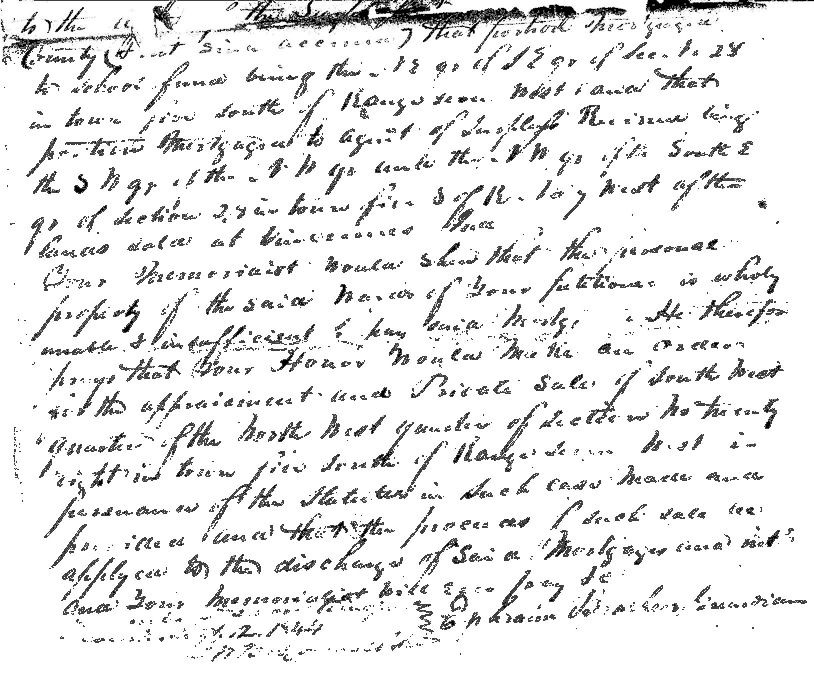 to the
County that portion Mortgaged
to school fund being the N E qr of S E qr of Sec. No 28
in town five south of Range seven West and that
portion Mortgaged to agent of Surplus Revenue being
the S W qr of the N W qr and the N W qr of the South E
qr of Section 28 in town five S of R. No 7 West of the
lands sold at Vincennes Ind
Your Memorialist would shew that the personal
property of the said wards of Your petitioner is wholy
unable & insufficient to pay said Mortg. He therefor
prays that Your Honor would make an order
for the appraisment and Private Sale of South West
quarter of the North West quarter of Section No twenty
eight in town five south of Range seven West in
persuance of the Statutes in such case made and
provided and that the proceeds of such sale be
applyed to the discharge of said Mortgages and int
and Your Memorialist will ever pray &c
Ephraim Guardian
2 1844